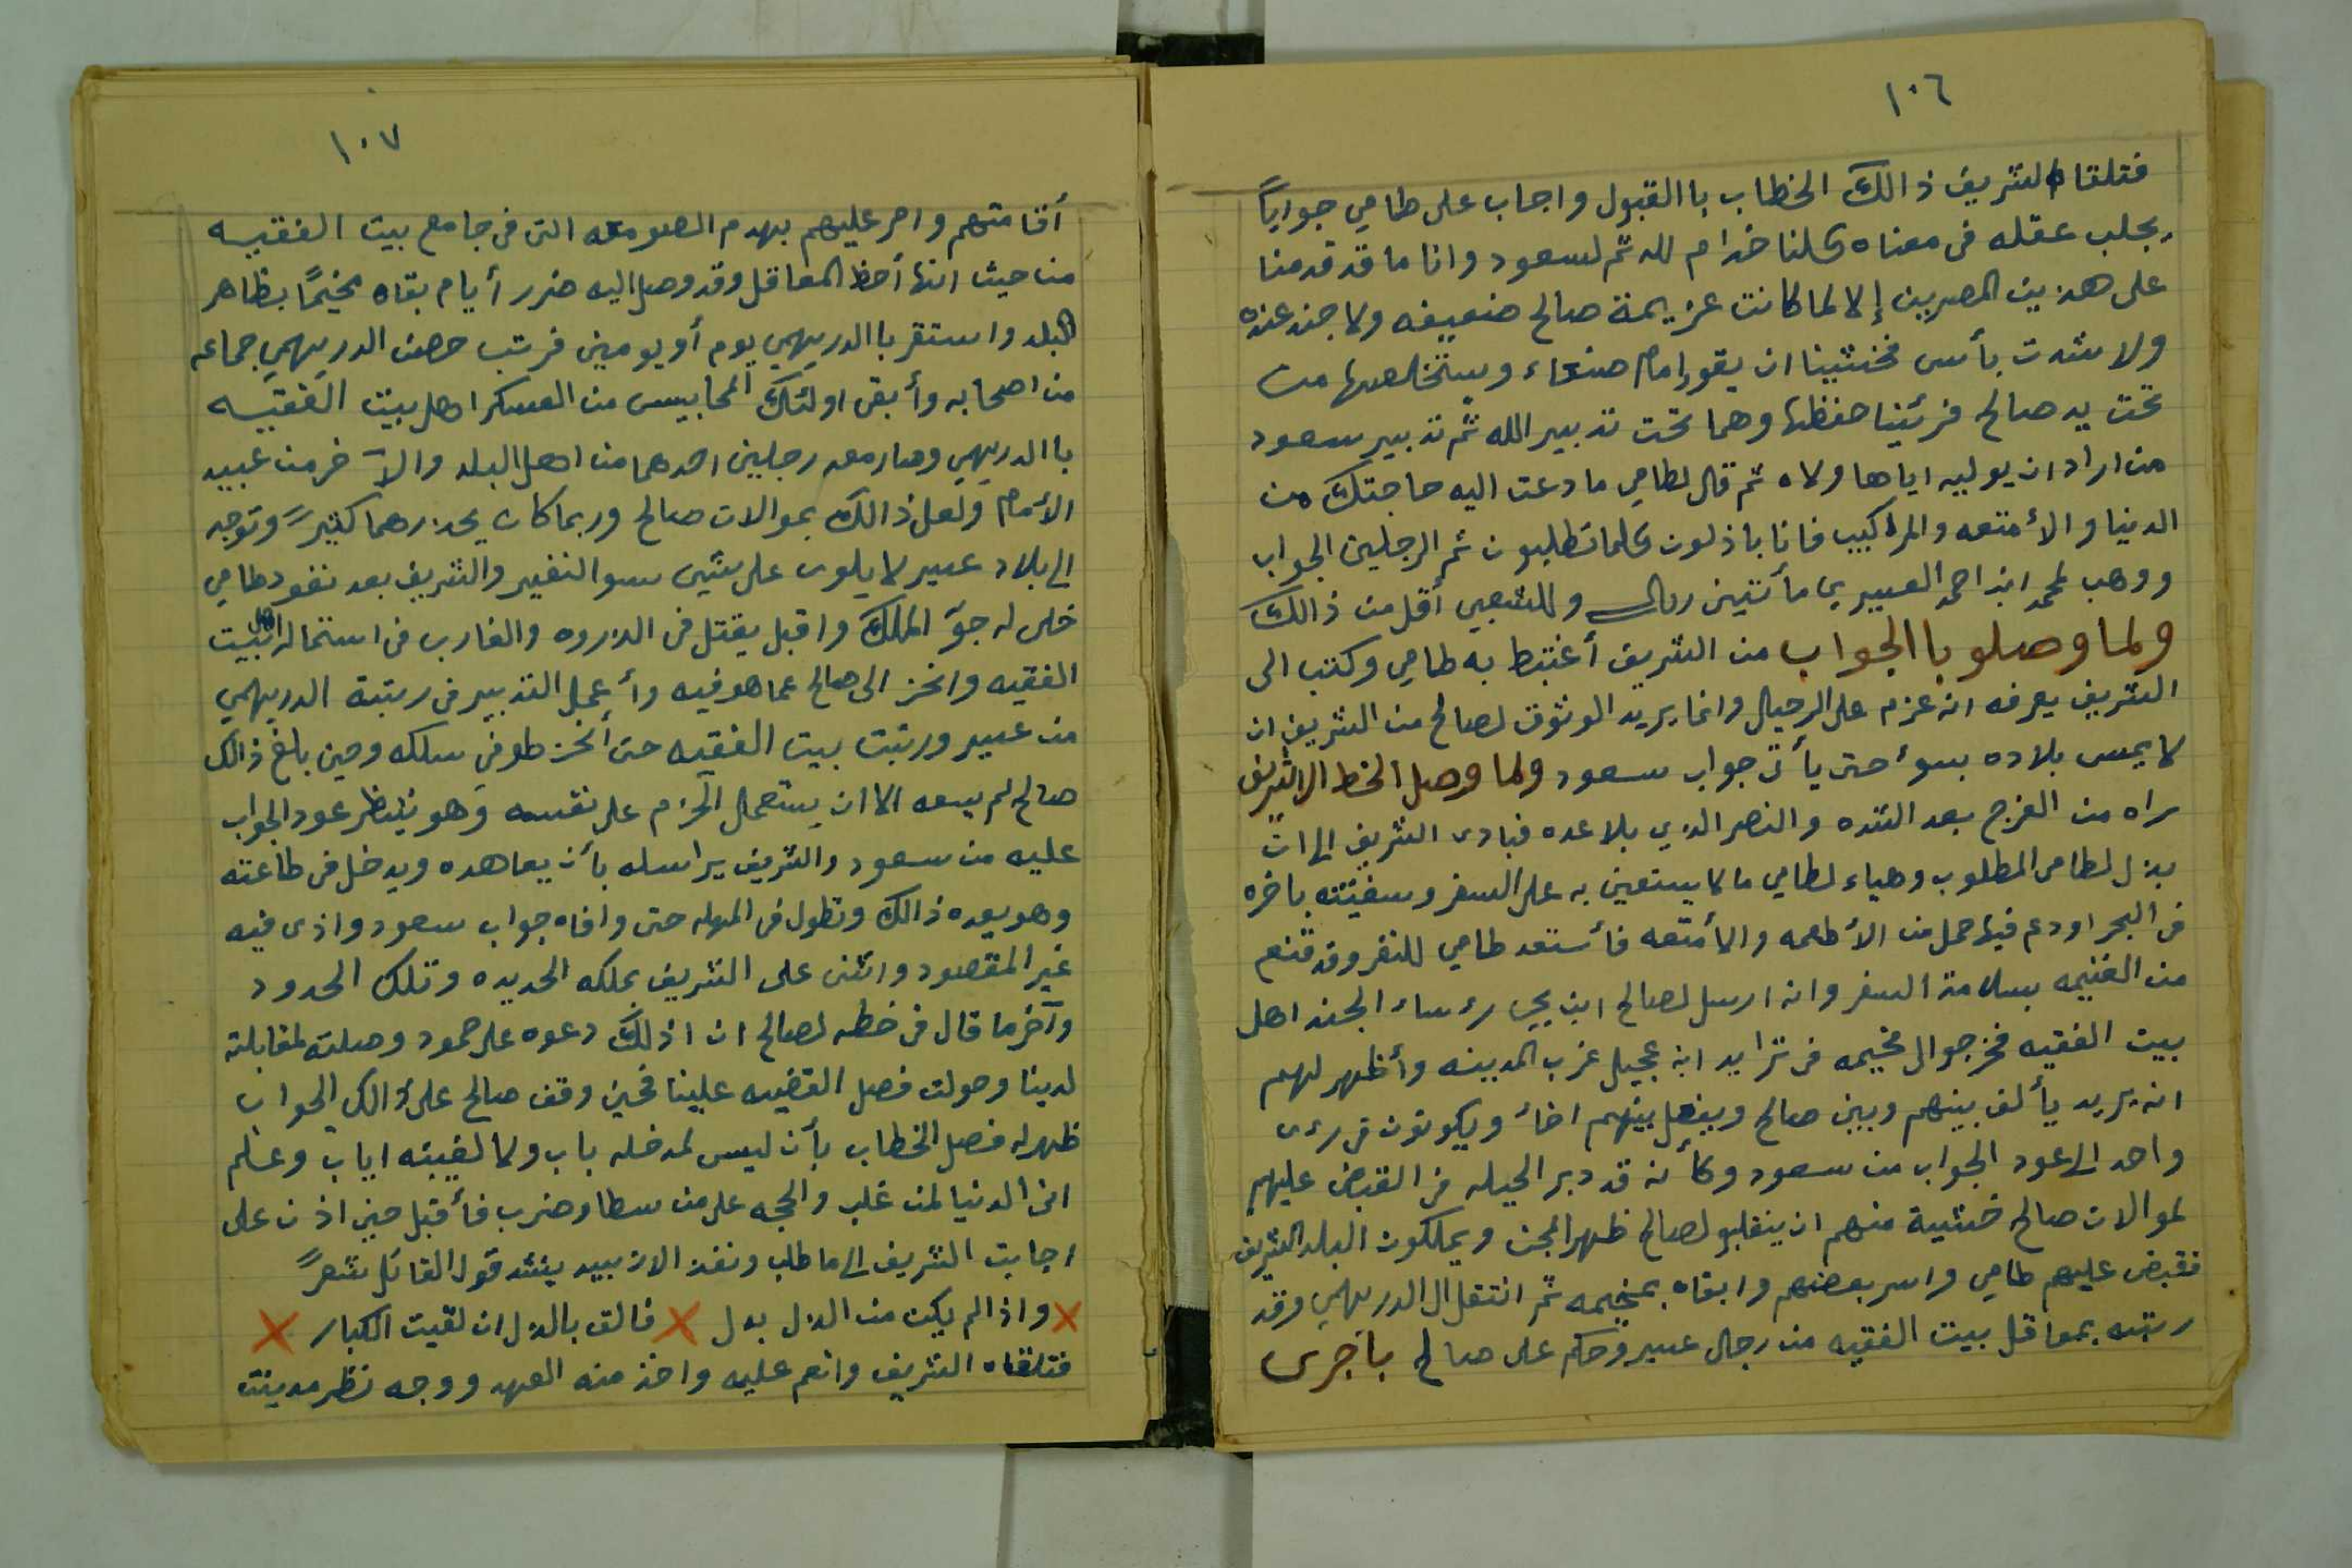 ١٠٦
فتلقاه الشريف ذالك الخطاب باالقبول واجاب على طامي جواباً
يجلب عقله فى معناه كلنا خدام لله ثم لسعود وانا ما قد قدمنا
على هذين المصرين إلا لما كانت عزيمة صالح ضعيفه ولا جند عنده
ولا شدت بأس فخشينا ان يقور امام صنعاء ويستخلصها من
تحت يد صالح فرئينا حفظها وهما تحت تدبير الله ثم تدبير سعود
من اراد ان يوليه اياها ولاه ثم قال لطامي ما دعت اليه حاجتك من
الدنيا والأمتعه والمراكيب فانا باذلون كلما تطلبون ثم الرجلين الجواب
ووهب لمحمد ابن احمد العسيري مأتين ريال وللشعبي أقل من ذالك
ولما وصلو باالجواب من الشريف أغتبط به طامي وكتب الى
الشريف يعرفه انه عزم على الرحيل وانما يريد الوثوق لصالح من الشريف ان
لا يمس بلاده بسوء حتى يأتى جواب سعود ولما وصل الخط الى الشريف
راه من الفرج بعد الشده والنصر الذي بلا عده فبادى الشريف الى ان
بذل لطامى المطلوب وهياء لطامي ما لا يستعين به على السفر وسفينته باخره
فى البحر اودع فيها حمل من الأطعمه والأمتعه فأستعد طامي للنفر وقد قنع
من الغنيمه بسلامة السفر وانه ارسل لصالح ابن يحي رؤساء الجند اهل
بيت الفقيه فخرجو الى مخيمه فى ترايد ابن عجيل غرب المدينه وأظهر لهم
انه يريد يألف بينهم وبين صالح ويفعل بينهم اخاً ويكونون فى رءى
واحد الى عود الجواب من سعود وكأنه قد دبر الحيله فى القبض عليهم
لموالات صالح خشية منهم ان ينقلبو لصالح ظهر المجن ويملكون البلد الشريف
فقبض عليهم طامي واسر بعضهم وابقاه بمخيمه ثم انتقل الى الدريهمي وقد
رتبه بمعاقل بيت الفقيه من رجال عسير وحكم على صالح باجرى
١٠٧
أقامتهم وامر عليهم بهدم الصومعه التى فى جامع بيت الفقيه
من حيث انها أحظ المعاقل وقد وصل اليه ضرر أيام بقاه مخيمًا بظاهر
البلد واستقر باالدريهمي يوم أو يومين فرتب حصن الدريهمي جماعه
من اصحابه وأبقى اولئك المحابيس من العسكر اهل بيت الفقيه
باالدريهمي وصار معه رجلين احدهما من اهل البلد والآخر من عبيد
الأمام ولعل ذالك بموالات صالح وربما كان يحذرهما كثيراً وتوجه
الى بلاد عسير لا يلوى على شيى سوا النفير والشريف بعد نفود طامي
خلى له جوّ الملك واقبل يفتل فى الذروه والغارب فى استمالة اهل بيت
الفقيه وانحز الى صالح عما هو فيه وأعمل التدبير فى رتبة الدريهمي
من عسير ورتبت بيت الفقيه حتى أنخرطو فى سلكه وحين بلغ ذالك
صالح لم يسعه الا ان يستعمل الحزم على نفسه وهو ينتظر عود الجواب
عليه من سعود والشريف يراسله بأن يعاهده ويدخل فى طاعته
وهو يعده ذالك وتطول فى المهله حتى وافاه جواب سعود واذى فيه
غير المقصود واثنى على الشريف بملكه الحديده وتلك الحدود
وآخر ما قال فى خطه لصالح ان اذلك دعوه على حمود وصلته لمقابلته
لدينا وصولت فصل القضيه علينا فحين وقف صالح على ذالك الجواب
ظهر له فصل الخطاب بأن ليس لمدخله باب ولا لغيبته اياب وعلم
ان الدنيا لمن غلب والحجه على من سطا وضرب فأقبل حين اذ ن على
اجابت الشريف الى ما طلب ونفذ الا زبيد ينشد قول القائل شعراً
واذا لم يكن من الذل بدل فالق بالذل ان لقيت الكبار
فتلقاه الشريف وانعم عليه واخذ منه العهد ووجه نظر مدينت